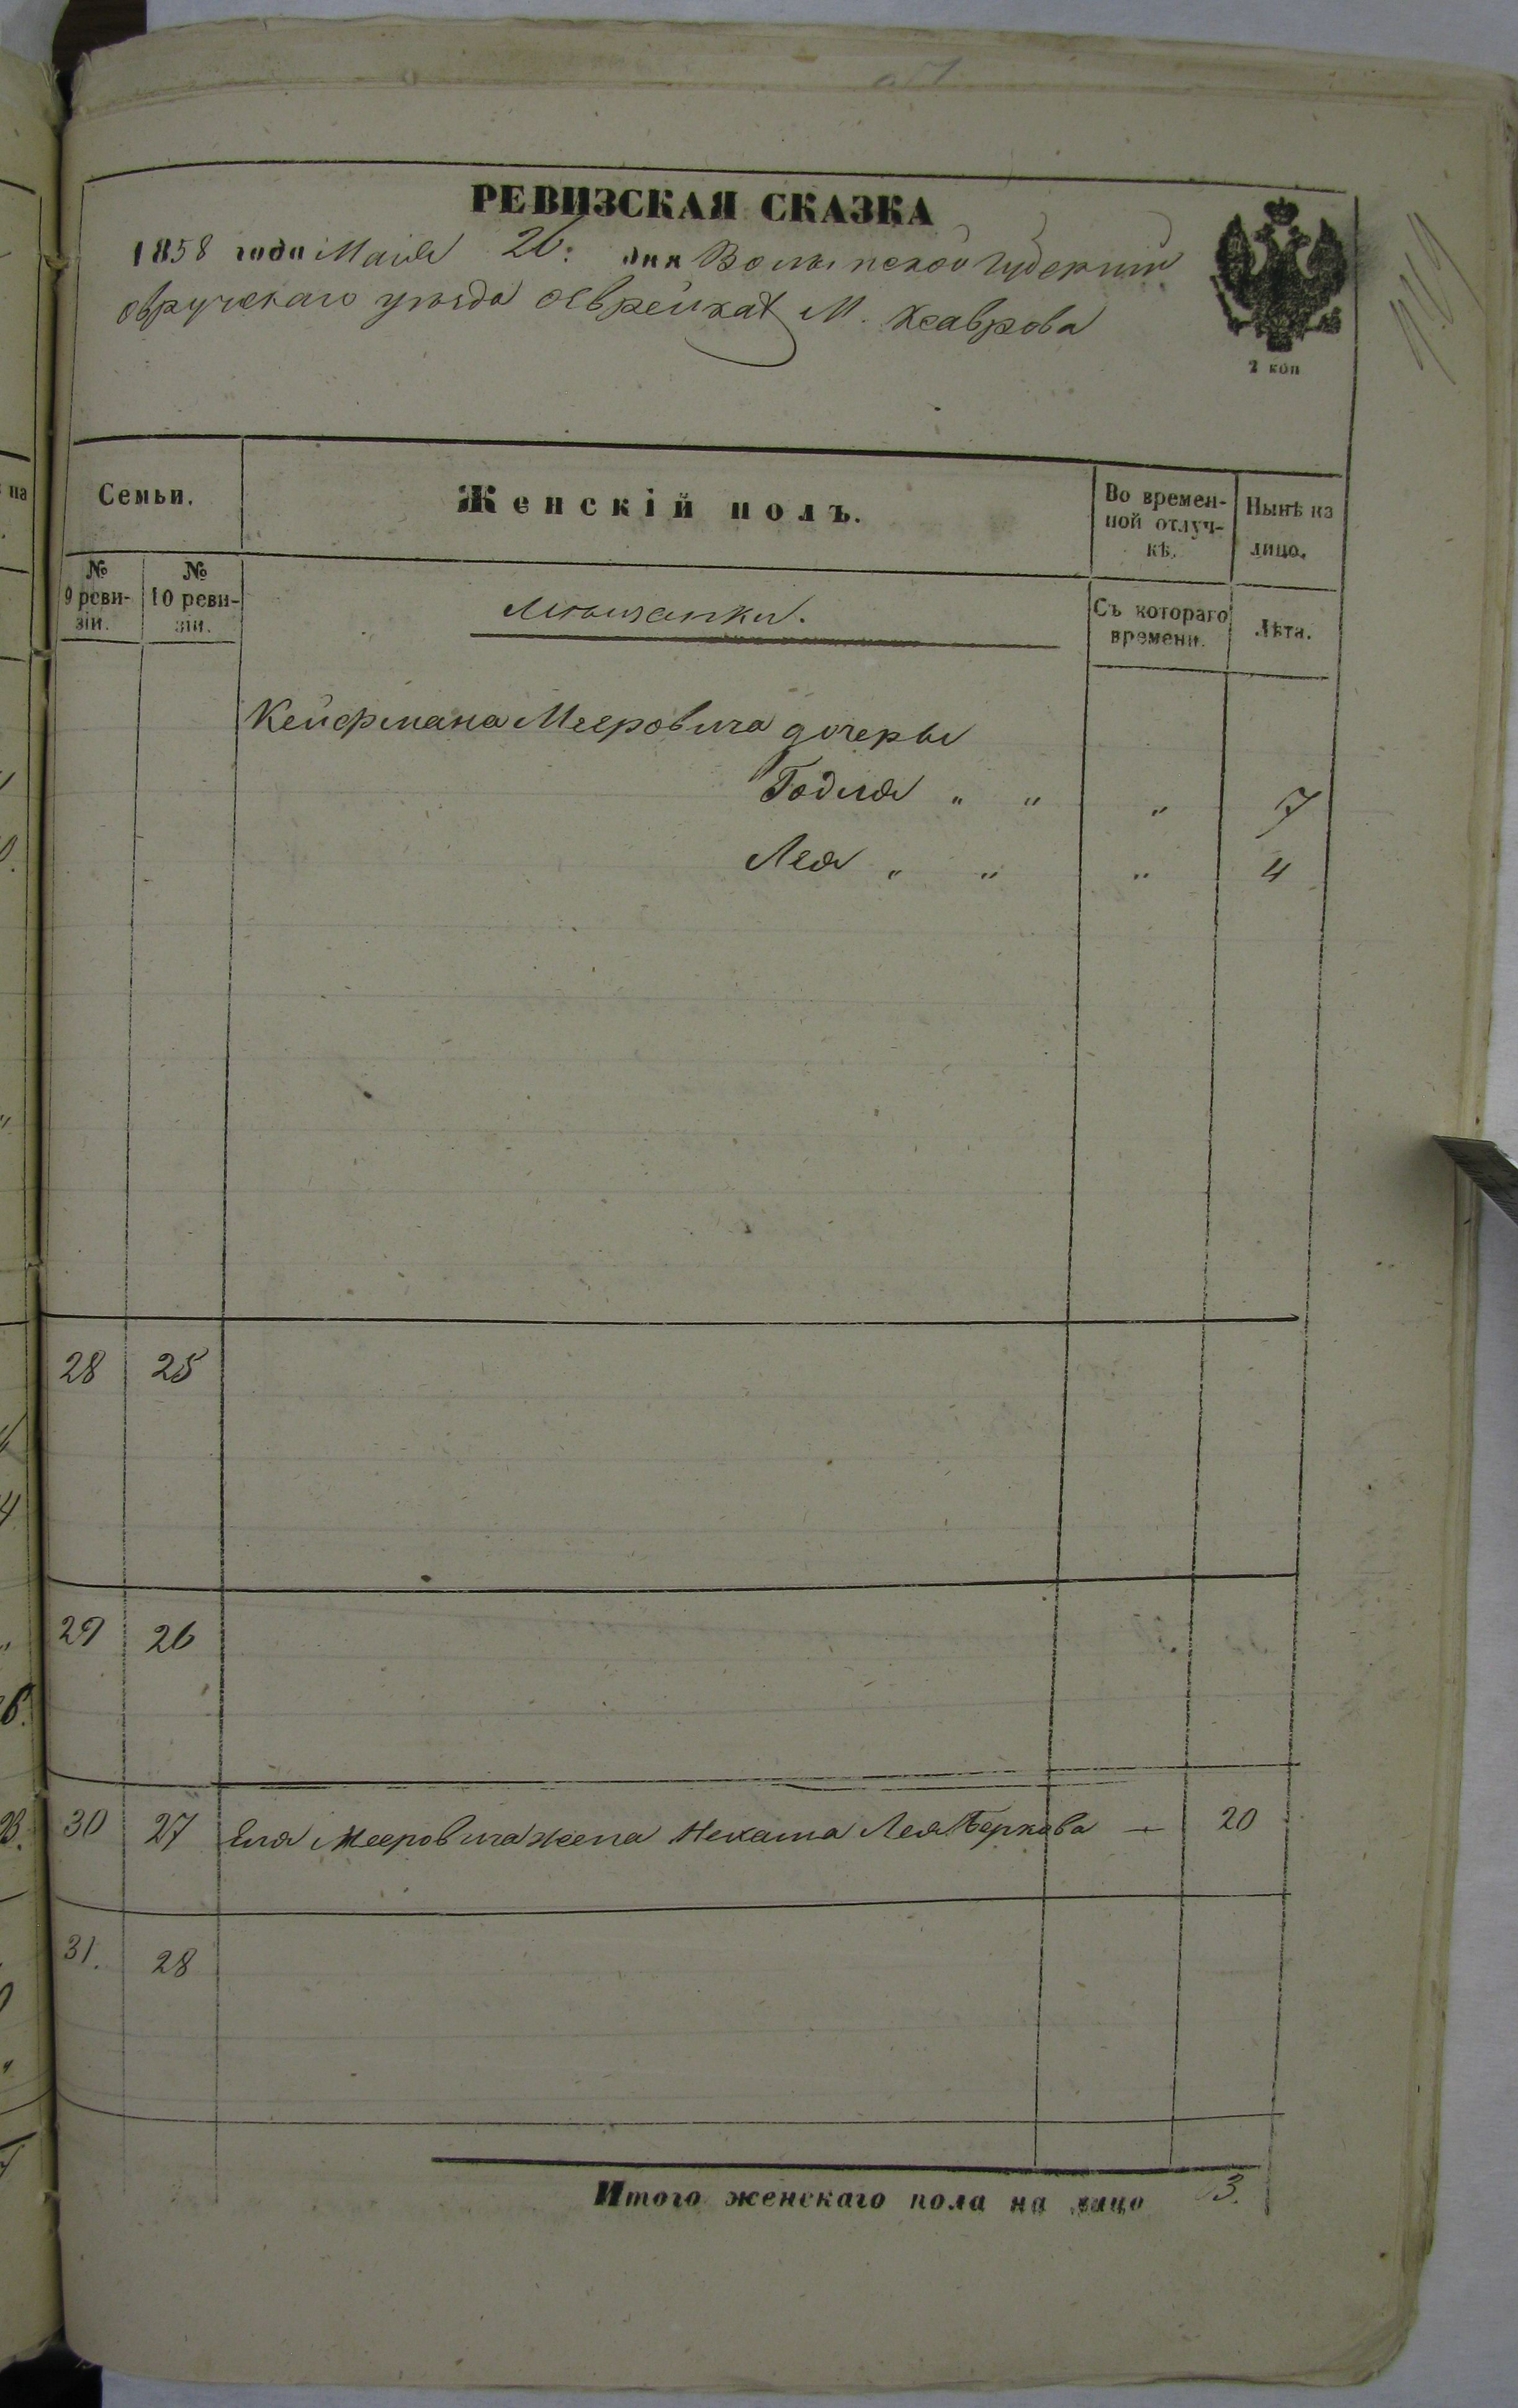 РЕВИЗСКАЯ СКАЗКА
1858 года Маія 26: дня Волынской Губерніи
Овручскаго уѣзда Еврейкахъ М. Ксаврова
2 коп
Семьи. Женскій полъ. Во времен-ной отлуч-кѣ. Нынѣ на лицо.
№ 9 реви-зіи. № 10 реви-зіи. Мѣщанки. Съ котораго времени. Лѣта.
Кейфмана Мееровича дочеры
Годля „ „ „ 7
Лея „ „ „ 4
28 25
29 26
30 27 Еля Мееровича жена Нехама Лея Беркова — 20
31. 28
Итого женскаго пола на лицо 3.